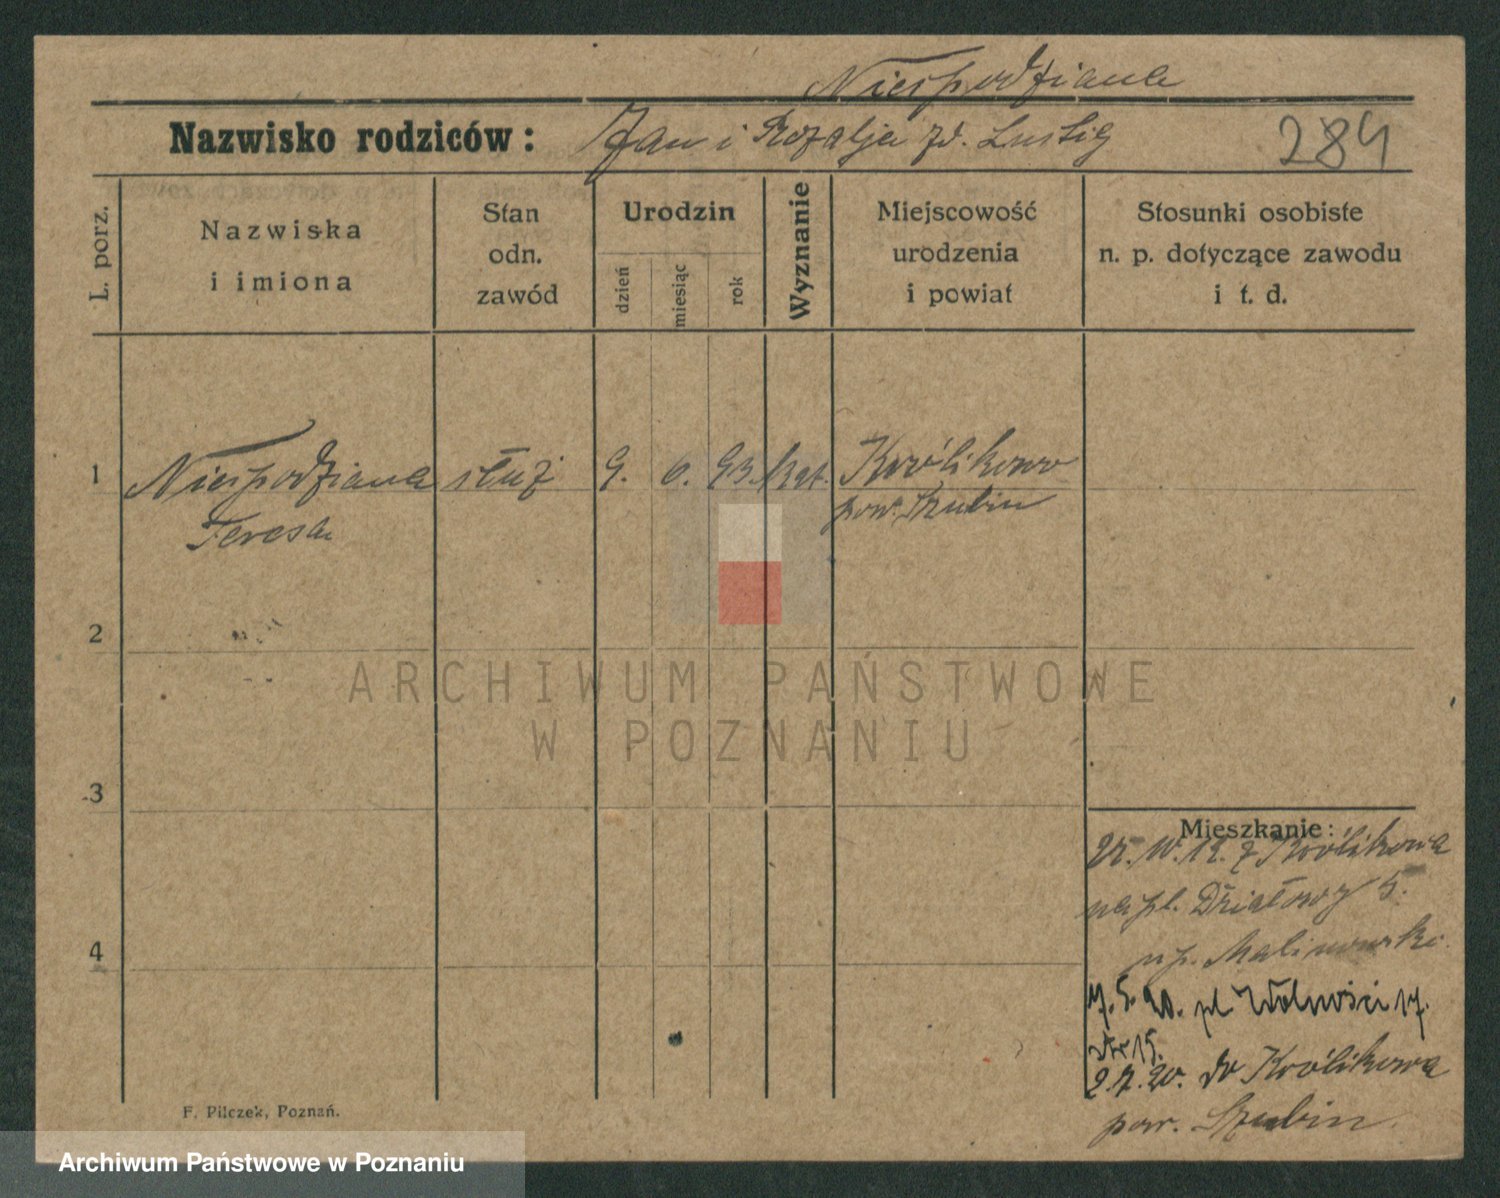 Niespodziana
Nazwisko rodziców: Jan i Rozalja zd. Lustig 284
L. porz.
Nazwiska
i imiona
Stan
odn.
zawód
Urodzin
dzień
miesiąc
rok
Wyznanie
Miejscowość
urodzenia
i powiat
Stosunki osobiste
n. p. dotyczące zawodu
i t. d.
1 Niespodziana służ 9. 6. 93. kat. Królikowo
Teresa pow. Szubin
2
3
4
Mieszkanie:
z Królikowa
na pl. Działowy 5.
up. Malinowski
7.5.20. pl Wolności 17.
2.7.20. do Królikowa
pow. Szubin
F. Pilczek, Poznań.
ARCHIWUM PAŃSTWOWE
W POZNANIU
Archiwum Państwowe w Poznaniu